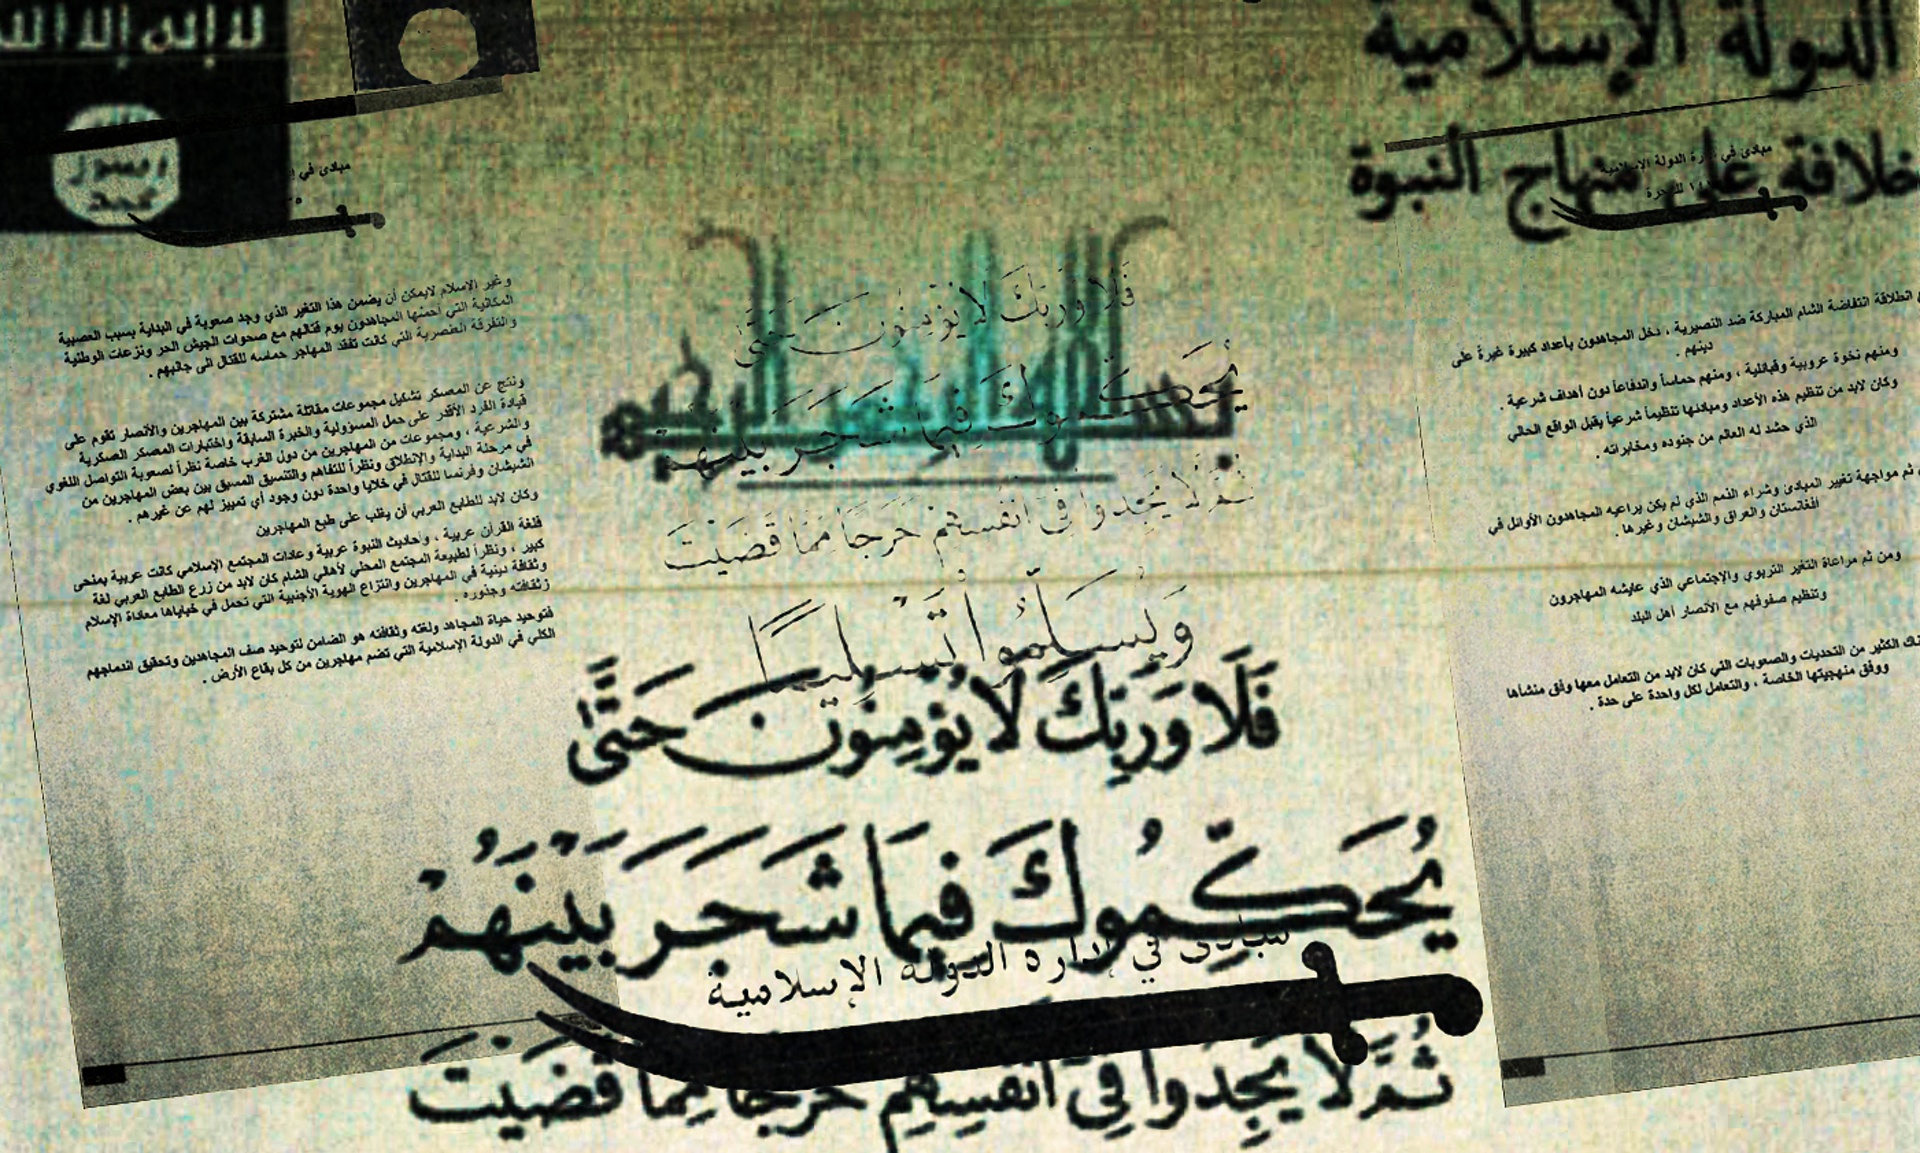 لا إله إلا الله
الله
رسول
محمد
الدولة الإسلامية
خلافة على منهاج النبوة
مبادئ في
مبادئ في إدارة الدولة الإسلامية
بسم الله الرحمن الرحيم
فَلَا وَرَبِّكَ لَا يُؤْمِنُونَ حَتَّىٰ
يُحَكِّمُوكَ فِيمَا شَجَرَ بَيْنَهُمْ
ثُمَّ لَا يَجِدُوا فِي أَنفُسِهِمْ حَرَجًا مِّمَّا قَضَيْتَ
وَيُسَلِّمُوا تَسْلِيمًا
انطلاقة انتفاضة الشام المباركة ضد النصيرية ، دخل المجاهدون بأعداد كبيرة غيرةً على
دينهم .
ومنهم نخوة عروبية وقبائلية ، ومنهم حماساً واندفاعاً دون أهداف شرعية .
وكان لابد من تنظيم هذه الأعداد ومبادئها تنظيماً شرعياً يقبل الواقع الحالي
الذي حشد له العالم من جنوده ومخابراته .
ثم مواجهة تغيير المبادئ وشراء الذمم الذي لم يكن يراعيه المجاهدون الأوائل في
أفغانستان والعراق والشيشان وغيرها .
ومن ثم مراعاة التغير التربوي والإجتماعي الذي عايشه المهاجرون
وتنظيم صفوفهم مع الأنصار أهل البلد
الكثير من التحديات والصعوبات التي كان لابد من التعامل معها وفق منشأها
ووفق منهجيتها الخاصة ، والتعامل لكل واحدة على حدة .
وغير الإسلام لايمكن أن يضمن هذا التغير الذي وجد صعوبة في البداية بسبب العصبية
المكانية التي أحسها المجاهدون يوم قتالهم مع صحوات الجيش الحر ونزعات الوطنية
والتفرقة العنصرية التي كانت تفقد المهاجر حماسه للقتال الى جانبهم .
ونتج عن المعسكر تشكيل مجموعات مقاتلة مشتركة بين المهاجرين والأنصار تقوم على
قيادة الفرد الأقدر على حمل المسؤولية والخبرة السابقة واختبارات المعسكر العسكرية
والشرعية ، ومجموعات من المهاجرين من دول الغرب خاصة نظراً لصعوبة التواصل اللغوي
في مرحلة البداية والإنطلاق ونظراً للتفاهم والتنسيق المسبق بين بعض المهاجرين من
الشيشان وفرنسا للقتال في خلايا واحدة دون وجود أي تمييز لهم عن غيرهم .
وكان لابد للطابع العربي أن يغلب على طبع المهاجرين
فلغة القرآن عربية ، وأحاديث النبوة عربية وعادات المجتمع الإسلامي كانت عربية بمنحى
كبير ، ونظراً لطبيعة المجتمع المحلي لأهالي الشام كان لابد من زرع الطابع العربي لغة
وثقافة دينية في المهاجرين وانتزاع الهوية الأجنبية التي تحمل في خباياها معاداة الإسلام
وثقافته وجذوره .
فتوحيد حياة المجاهد ولغته وثقافته هو الضامن لتوحيد صف المجاهدين وتحقيق اندماجهم
الكلي في الدولة الإسلامية التي تضم مهاجرين من كل بقاع الأرض .
فَلَا وَرَبِّكَ لَا يُؤْمِنُونَ حَتَّىٰ
يُحَكِّمُوكَ فِيمَا شَجَرَ بَيْنَهُمْ
مبادئ في إدارة الدولة الإسلامية
ثُمَّ لَا يَجِدُوا فِي أَنفُسِهِمْ حَرَجًا مِّمَّا قَضَيْتَ